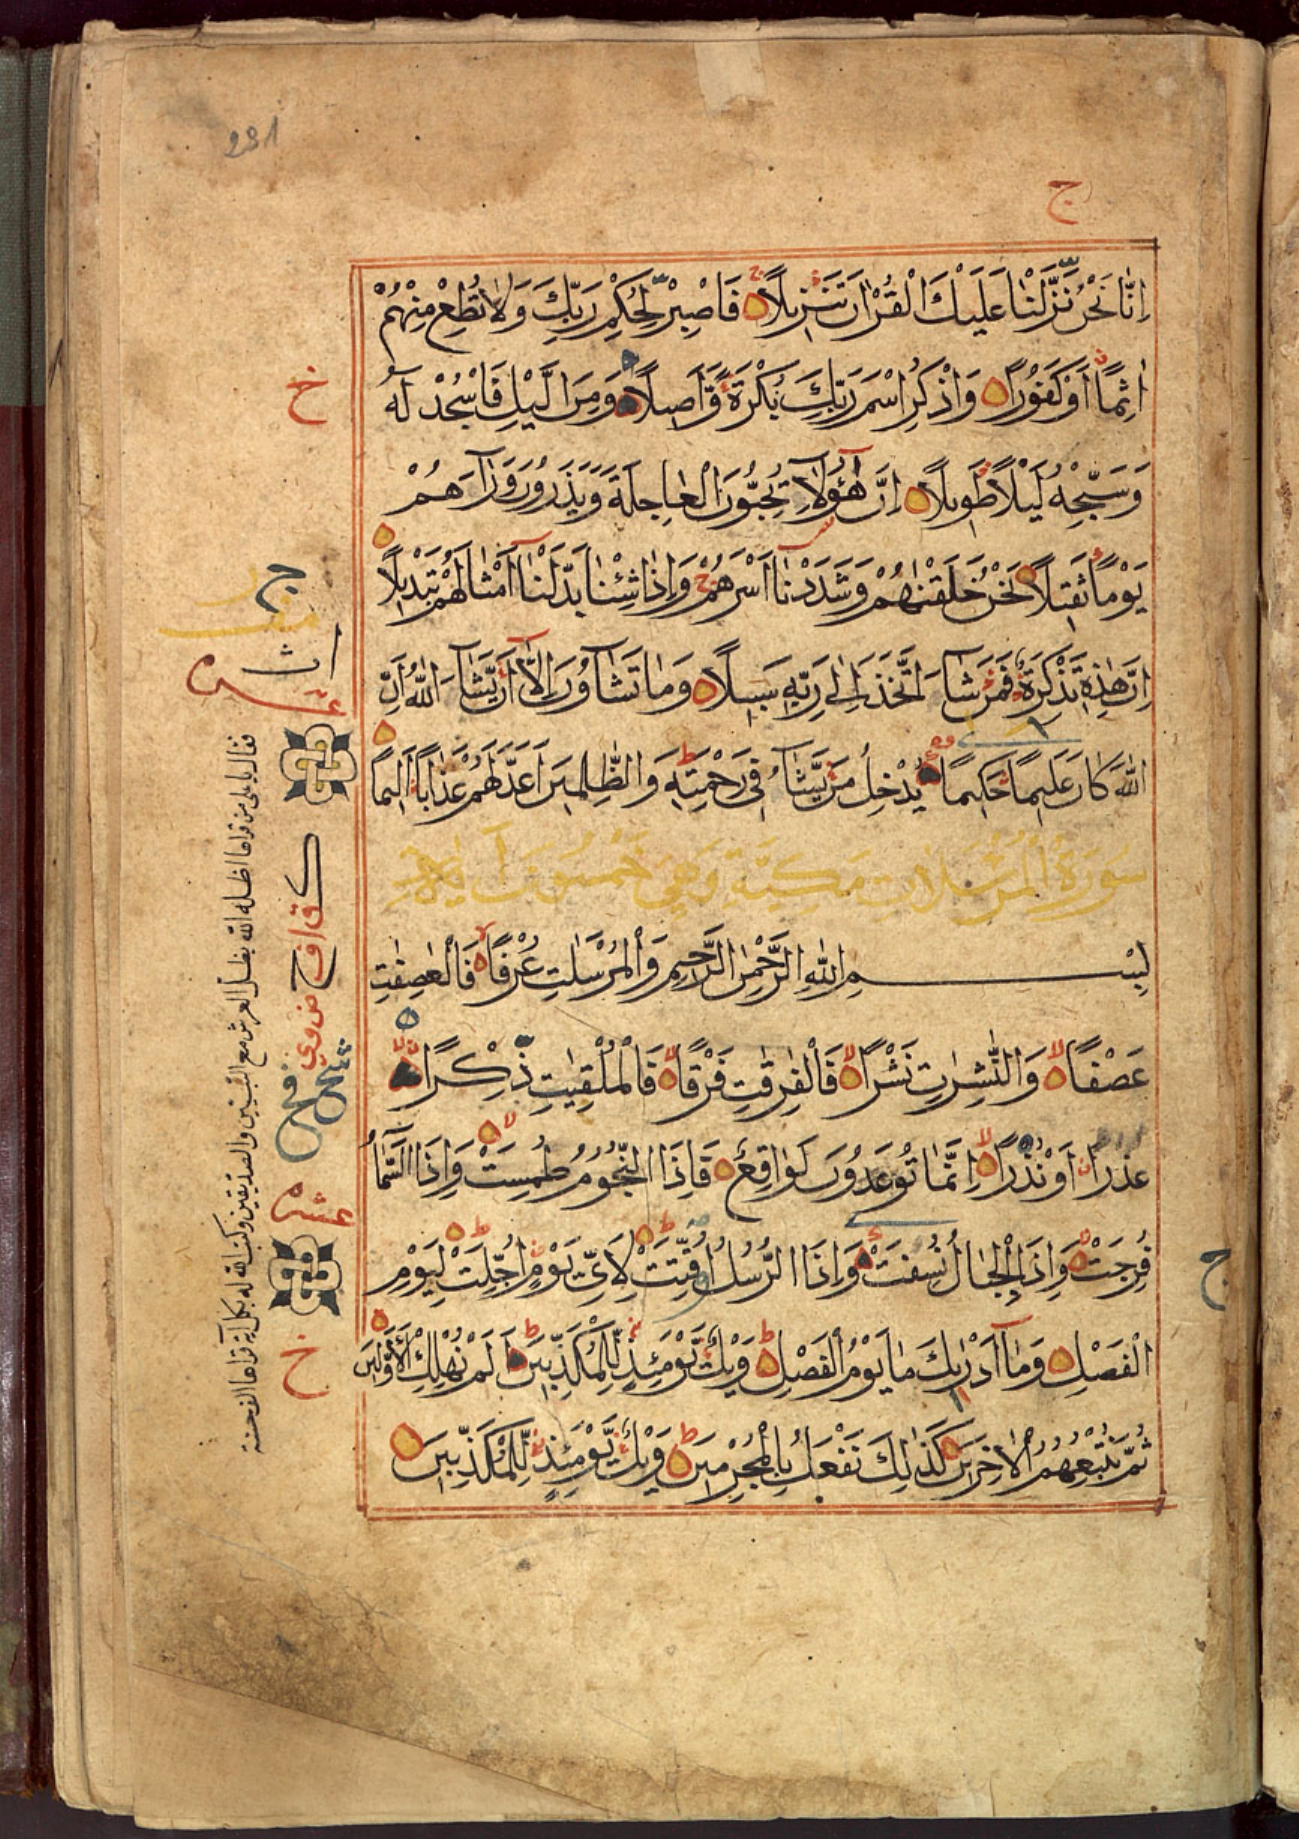 291
ج
اِنَّا نَحْنُ نَزَّلْنَا عَلَيْكَ الْقُرْاٰنَ تَنْزِيلًا فَاصْبِرْ لِحُكْمِ رَبِّكَ وَلَا تُطِعْ مِنْهُمْ
اٰثِمًا اَوْ كَفُورًا وَاذْكُرِ اسْمَ رَبِّكَ بُكْرَةً وَّاَصِيلًا وَمِنَ الَّيْلِ فَاسْجُدْ لَهُ
وَسَبِّحْهُ لَيْلًا طَوِيلًا اِنَّ هٰٓؤُلَاۤءِ يُحِبُّونَ الْعَاجِلَةَ وَيَذَرُونَ وَرَاۤءَهُمْ
يَوْمًا ثَقِيلًا نَحْنُ خَلَقْنٰهُمْ وَشَدَدْنَا اَسْرَهُمْ وَاِذَا شِئْنَا بَدَّلْنَا اَمْثَالَهُمْ تَبْدِيلًا
اِنَّ هٰذِهٖ تَذْكِرَةٌ فَمَنْ شَاۤءَ اتَّخَذَ اِلٰى رَبِّهٖ سَبِيلًا وَمَا تَشَاۤءُونَ اِلَّا اَنْ يَّشَاۤءَ اللّٰهُ اِنَّ
اللّٰهَ كَانَ عَلِيمًا حَكِيمًا يُدْخِلُ مَنْ يَّشَاۤءُ فِي رَحْمَتِهٖ وَالظّٰلِمِينَ اَعَدَّ لَهُمْ عَذَابًا اَلِيمًا
سُورَةُ الْمُرْسَلَاتِ مَكِيَّةٌ وَهِيَ خَمْسُونَ آيَةً
بِسْمِ اللّٰهِ الرَّحْمٰنِ الرَّحِيمِ وَالْمُرْسَلٰتِ عُرْفًا فَالْعٰصِفٰتِ
عَصْفًا وَالنّٰشِرٰتِ نَشْرًا فَالْفٰرِقٰتِ فَرْقًا فَالْمُلْقِيٰتِ ذِكْرًا
عُذْرًا اَوْ نُذْرًا اِنَّمَا تُوعَدُونَ لَوَاقِعٌ فَاِذَا النُّجُومُ طُمِسَتْ وَاِذَا السَّمَاۤءُ
فُرِجَتْ وَاِذَا الْجِبَالُ نُسِفَتْ وَاِذَا الرُّسُلُ اُقِّتَتْ لِاَيِّ يَوْمٍ اُجِّلَتْ لِيَوْمِ
الْفَصْلِ وَمَا اَدْرٰىكَ مَا يَوْمُ الْفَصْلِ وَيْلٌ يَّوْمَئِذٍ لِّلْمُكَذِّبِينَ اَلَمْ نُهْلِكِ الْاَوَّلِينَ
ثُمَّ نُتْبِعُهُمُ الْاٰخِرِينَ كَذٰلِكَ نَفْعَلُ بِالْمُجْرِمِينَ وَيْلٌ يَّوْمَئِذٍ لِّلْمُكَذِّبِينَ
خ
ج
عشر
عشره
خ
ج